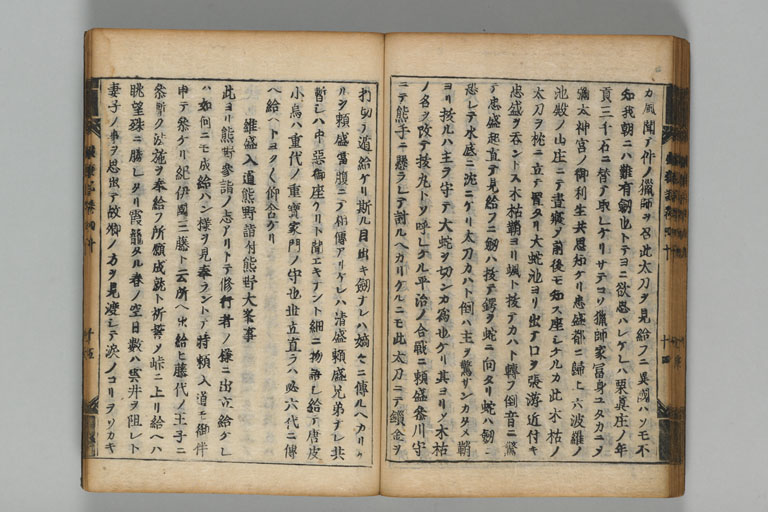 カ風聞テ件ノ猟師ヲ召此太刀ヲ見給フニ異國ハソモ不
知我朝ニハ難有劔也トテヨニ欲思ハレケレハ栗真庄ノ年
貢三千石ニ替テ取レケリサテコソ猟師家冨身ユタカニソ
弥太神宮ノ御利生共思知ケリ忠盛都ニ歸ヒ六波羅ノ
池殿ノ山庄ニテ晝寢ヲ前後モ知ス座シケルカ此木枯ノ
太刀ヲ枕ニ立テ置タリ大蛇池ヨリ出テ口ヲ張游近付キ
忠盛ヲ呑ントス木枯鞘ヨリ颯ト抜テカハト轉フ倒音ニ驚
テ忠盛起直テ見給フニ劔ハ抜テ鐔ヲ蛇ニ向タリ蛇ハ劔ニ
恐レテ水底ニ沈ニケリ太刀カハト倒ハ主ヲ驚サンカタメ鞘
ヨリ抜ルハ主ヲ守テ大蛇ヲ切ンカ為也ケリ其ヨリソ木枯
ノ名ヲ改テ抜丸トソ呼レケル平治ノ合戰ニ頼盛
ニテ熊手ニ懸ラレテ討ルヘカリケルニモ此太刀ニテ鏁金ヲ
打切テ遁給ケリ斯ル目出キ劔ナレハ嫡々ニ傳ルヘカリケ
ルヲ頼盛當腹ニテ相傳アリケレハ清盛頼盛兄弟ナレ共
暫シハ中惡御座ケリト聞エキナント細ニ物語シ給テ唐皮
小烏ハ重代ノ重寶家門ノ守也世立直ラハ必六代ニ傳
ヘ給ヘトヨクく仰含ケリ
維盛入道熊野詣付熊野大峯事
此ヨリ熊野參詣ノ志アリトテ修行者ノ様ニ出立給ケレ
ハ如何ニモ成給ハン様ヲ見奉ラントテ時頼入道モ御伴
申テ參ケリ紀伊國三藤ト云所ヘ出給ヒ藤代ノ王子ニ
參リ法施ヲ奉給フ所願成就ト祈誓ノ峠ニ上リ給ヘハ
眺望殊ニ勝レタリ霞籠タル春ノ空日數ハ雲井ヲ阻レト
妻子ノ事ヲ思出テ故郷ノ方ヲ見渡シテ涙ノコリヲソカキ